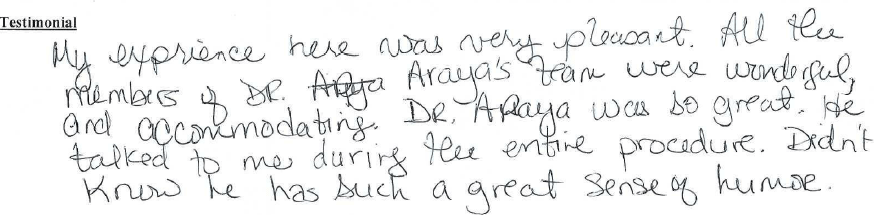 Testimonial
My exprience here was very pleasant. All the
members of DR. Araya's team were wonderful,
and accommodating. DR. ARaya was so great. He
talked to me during the entire procedure. Didn't
Know he has such a great sense of humor.